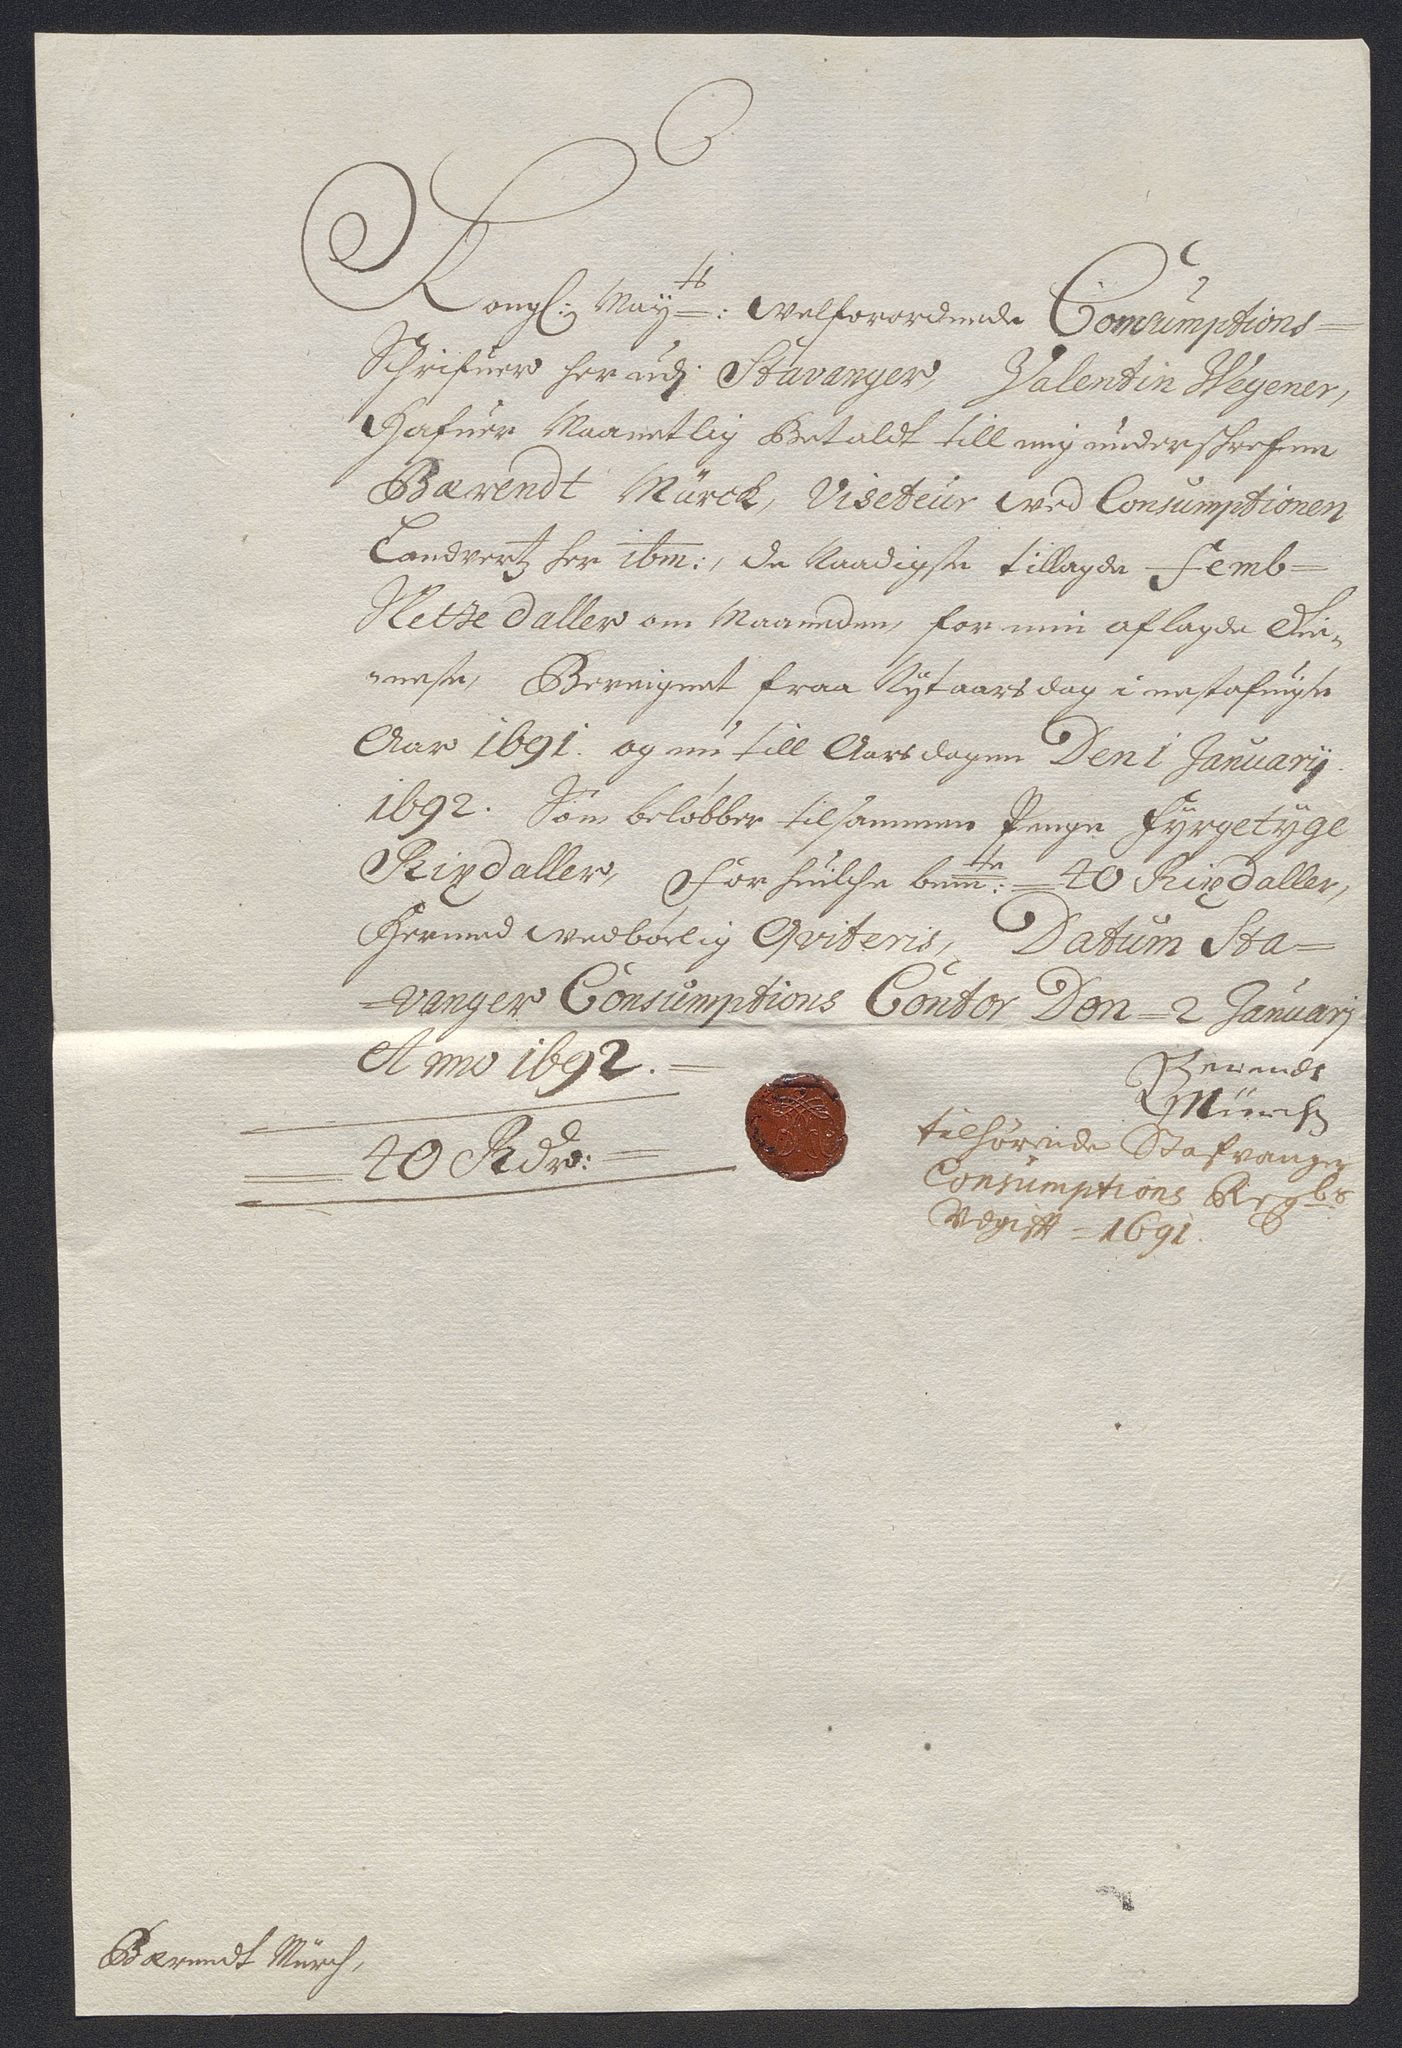 Kongl: May:ts: velforordnede Consumptions=
Schrifuer her udj Stavanger, Valentin Wegener,
Hafuer Maanetlig Betaldt till mig underschrefne
Barendt Mürck, Viseteur ved Consumptionen
Landvertz her ibm:, de Naadigste tillagde Femb=
Slette daller om Maaneden, for min aflagde Tie-
neste, Bereignet fraa Nytaarsdag i nestafuigte
Aar 1691. og nu till Aarsdagen Den 1 Januarij
1692. Som beløbber tilsammen Penge Fyrgetyge
Rixdaller, For huilche bemte: =40 Rixdaller,
Hermed vedbørlig Qviteris, Datum Sta=
=vanger Consumptions Contor Den =2 Januarj
Anno 1692.=
= 40 Rdr: =
Berendt
Mürch
tilhørende Stafvanger
Consumptions Regbs
1691.
Barendt Mürch,